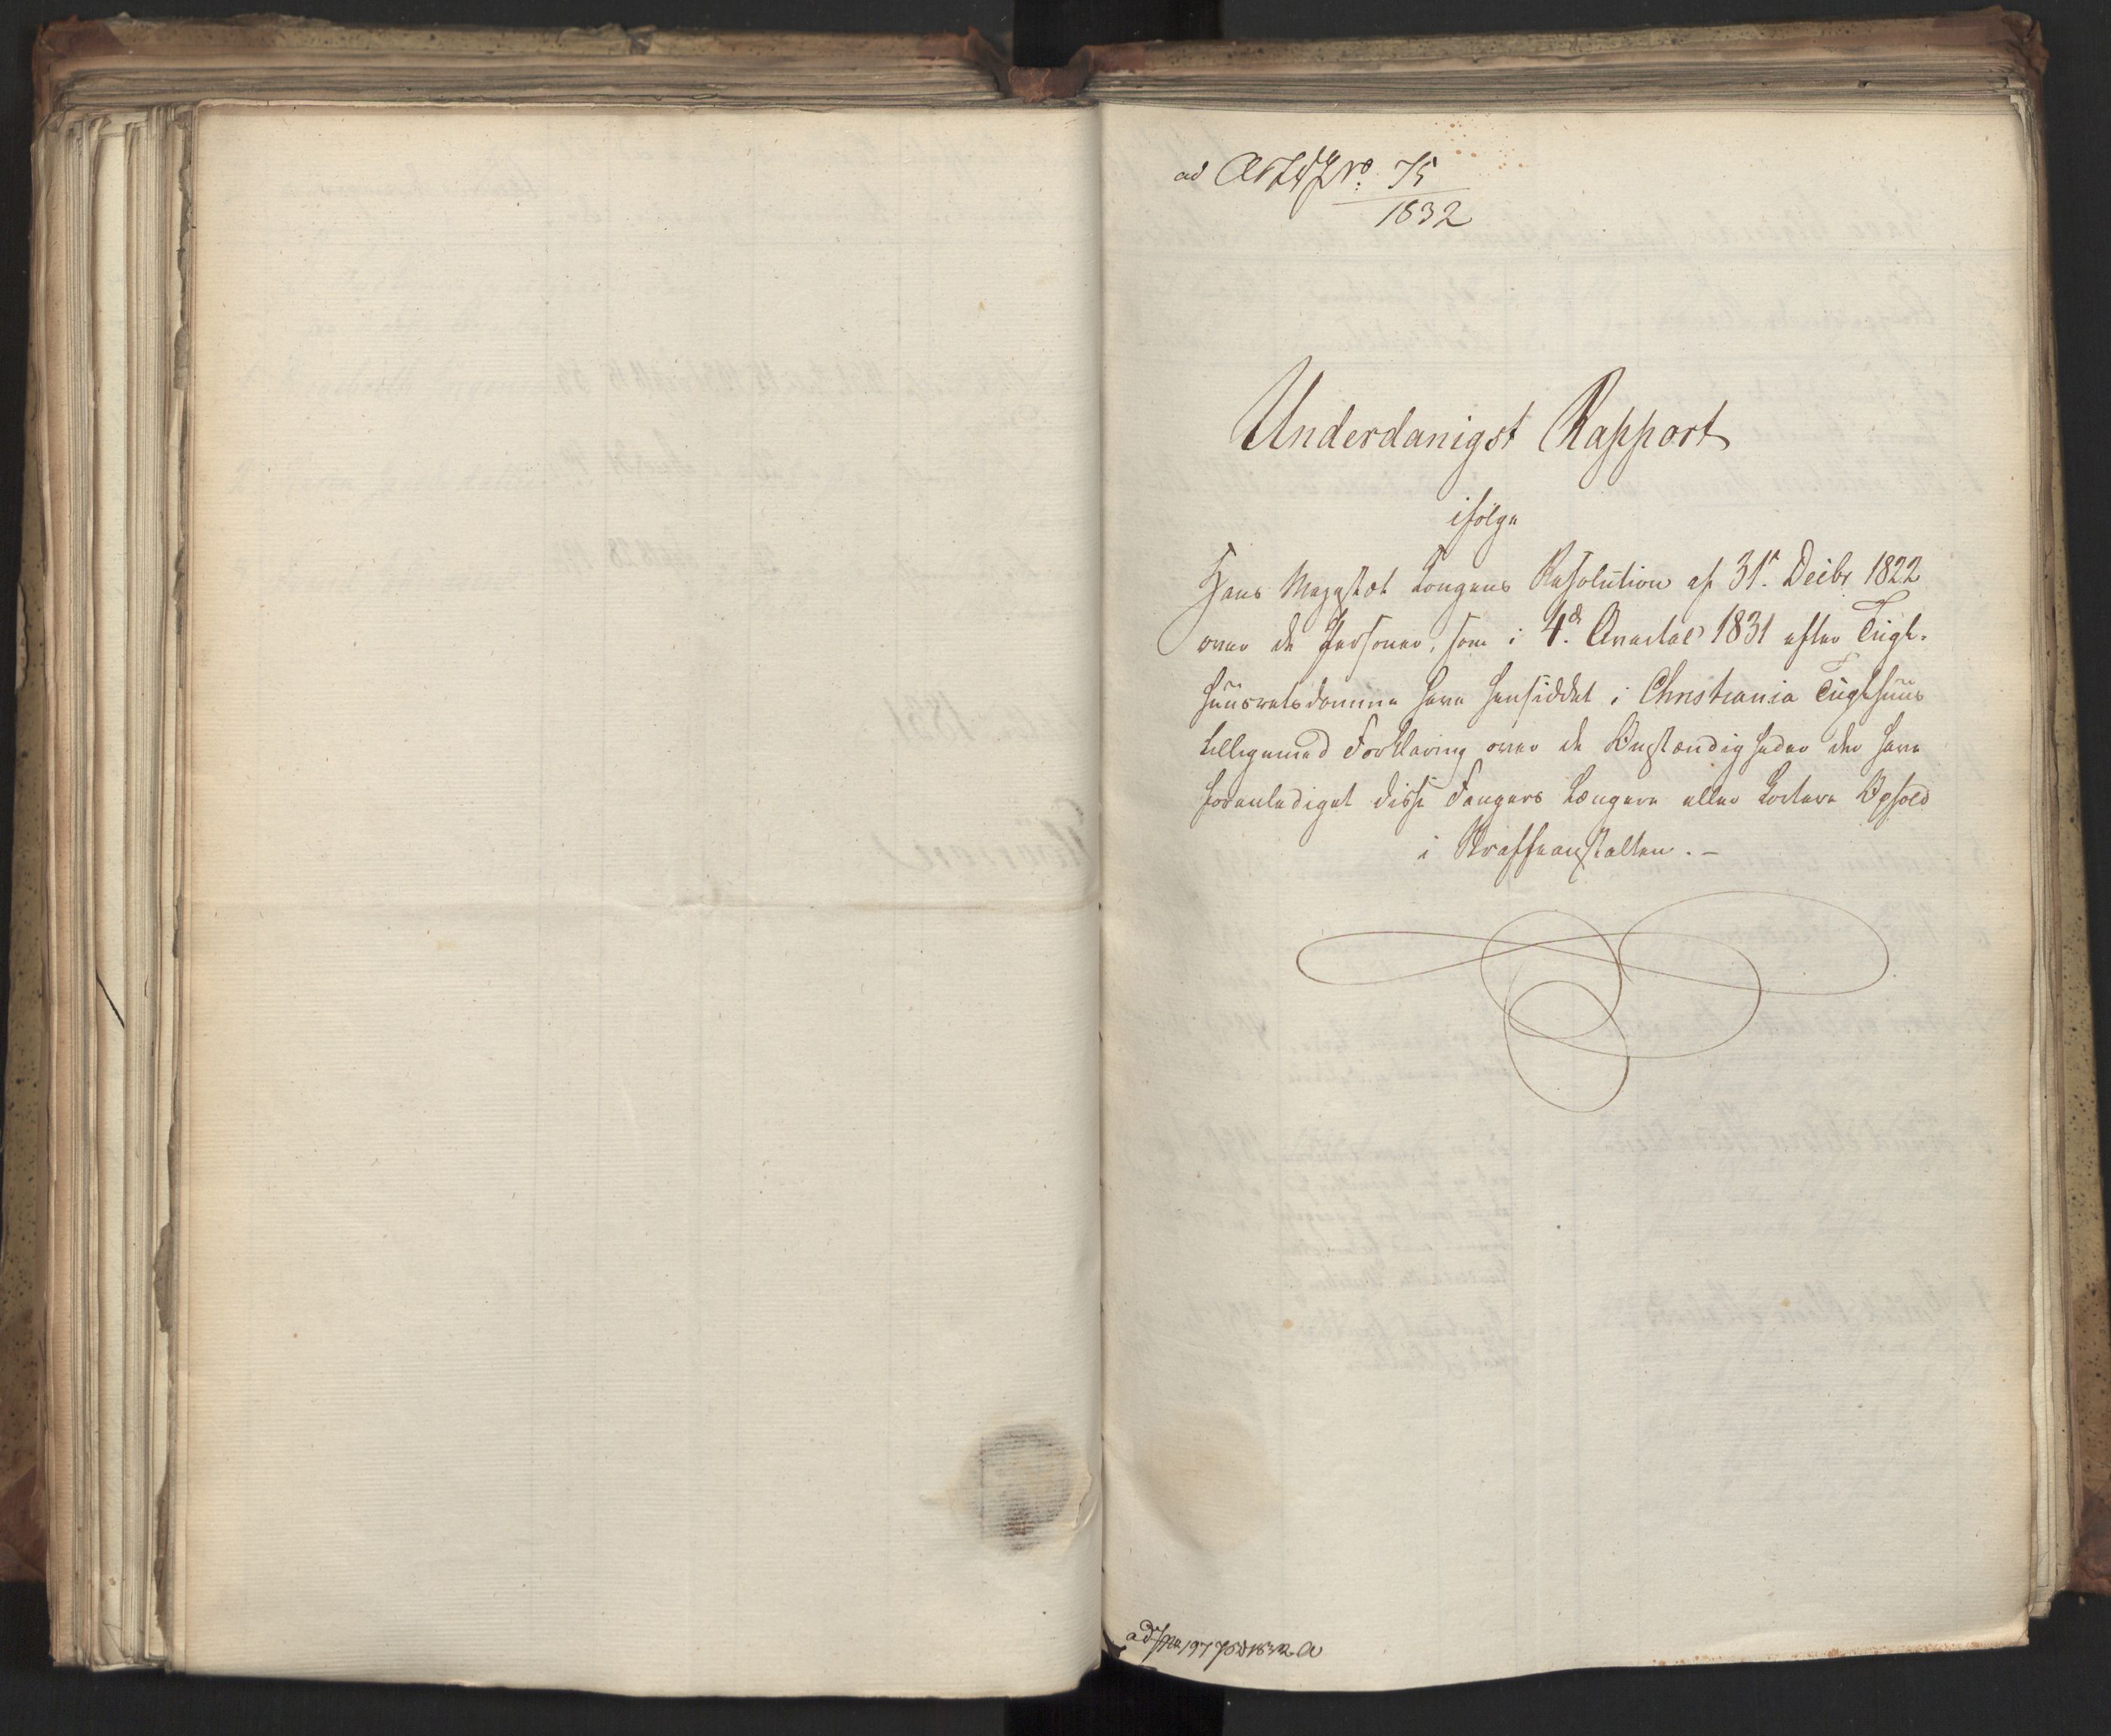 ad No. 75
1832
Underdanigst Rapport
ifølge
Hans Majestæt Kongens Resolution af 31te Decbr 1822
over de Personer, som i 4de Qvartal 1831 efter Tugt-
huusretsdomme have hensiddet i Christiania Tugthuus
tilligemed Forklaring over de Omstændigheder der have
foranlediget disse Fangers længere eller kortere Ophold
i Straffeanstalten. –